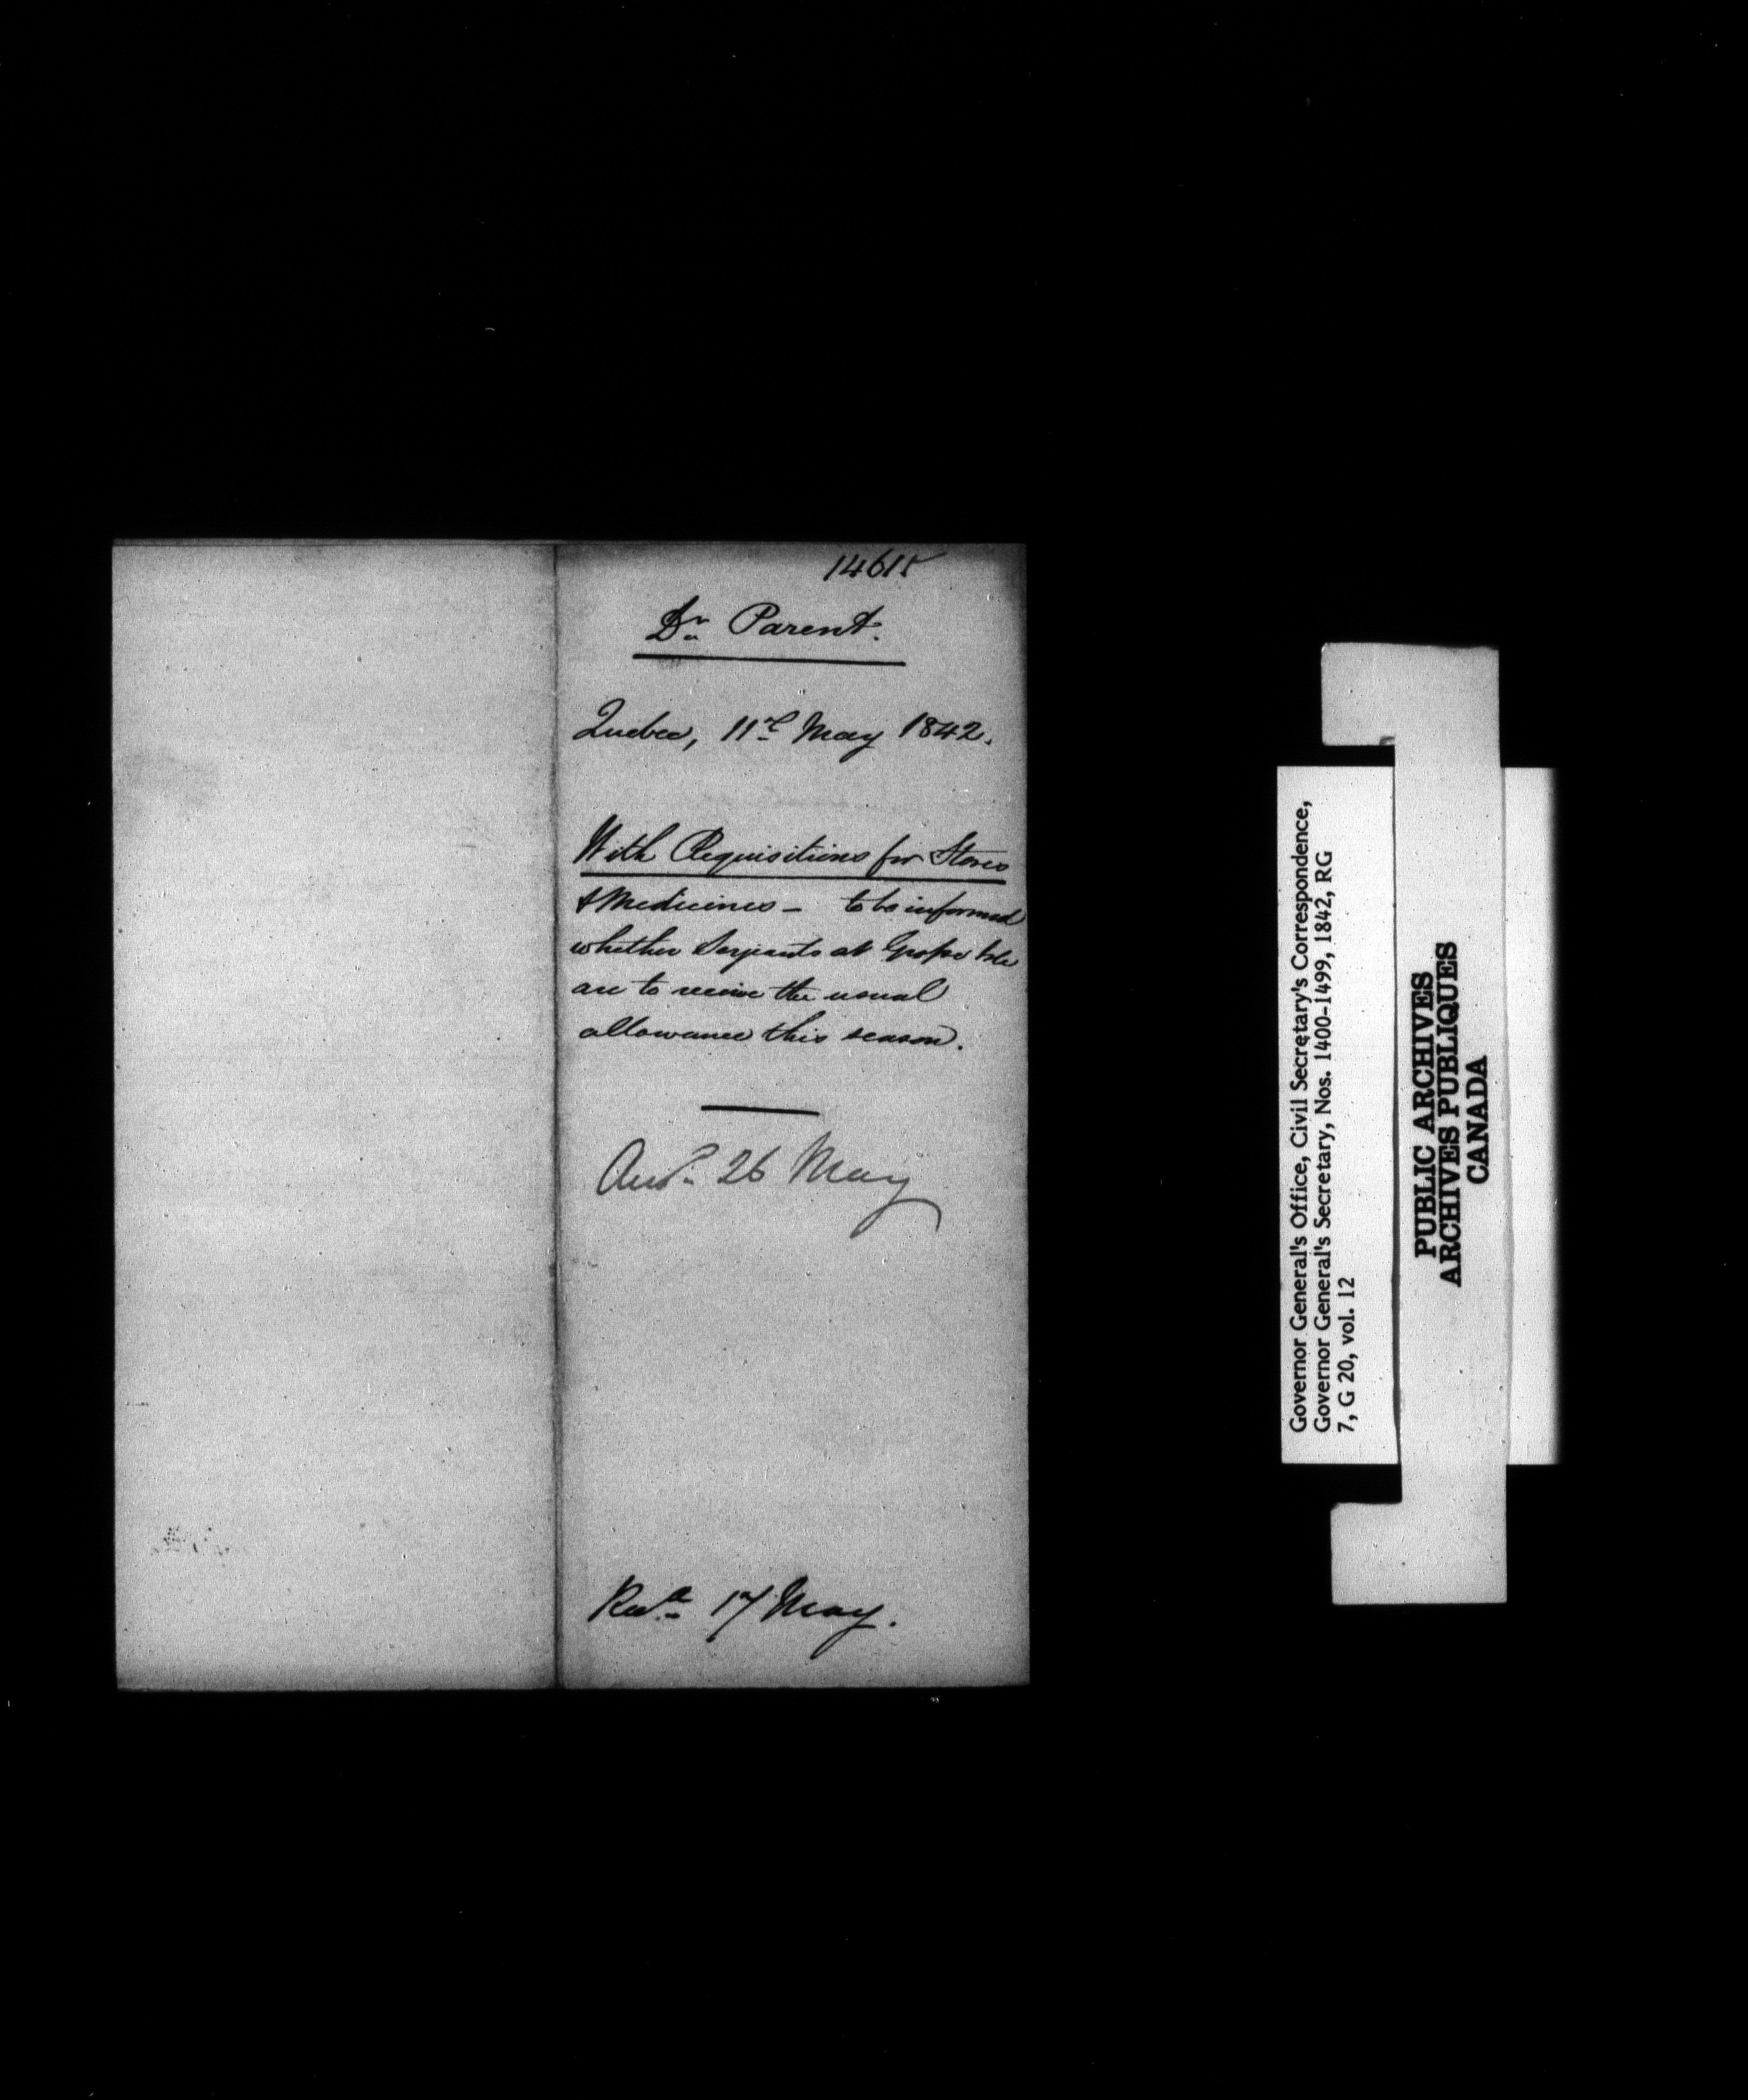 14615
Dr. Parent.
Quebec, 11th May 1842.
With Requisitions for Stores
& Medicines - to be informed
whether Serjeants at Grosse Isle
are to receive the usual
allowance this season.
Ansd. 26 May
Recd. 17 May.
Governor General's Office, Civil Secretary's Correspondence,
Governor General's Secretary, Nos. 1400-1499, 1842, RG
7, G 20, vol. 12
PUBLIC ARCHIVES
ARCHIVES PUBLIQUES
CANADA